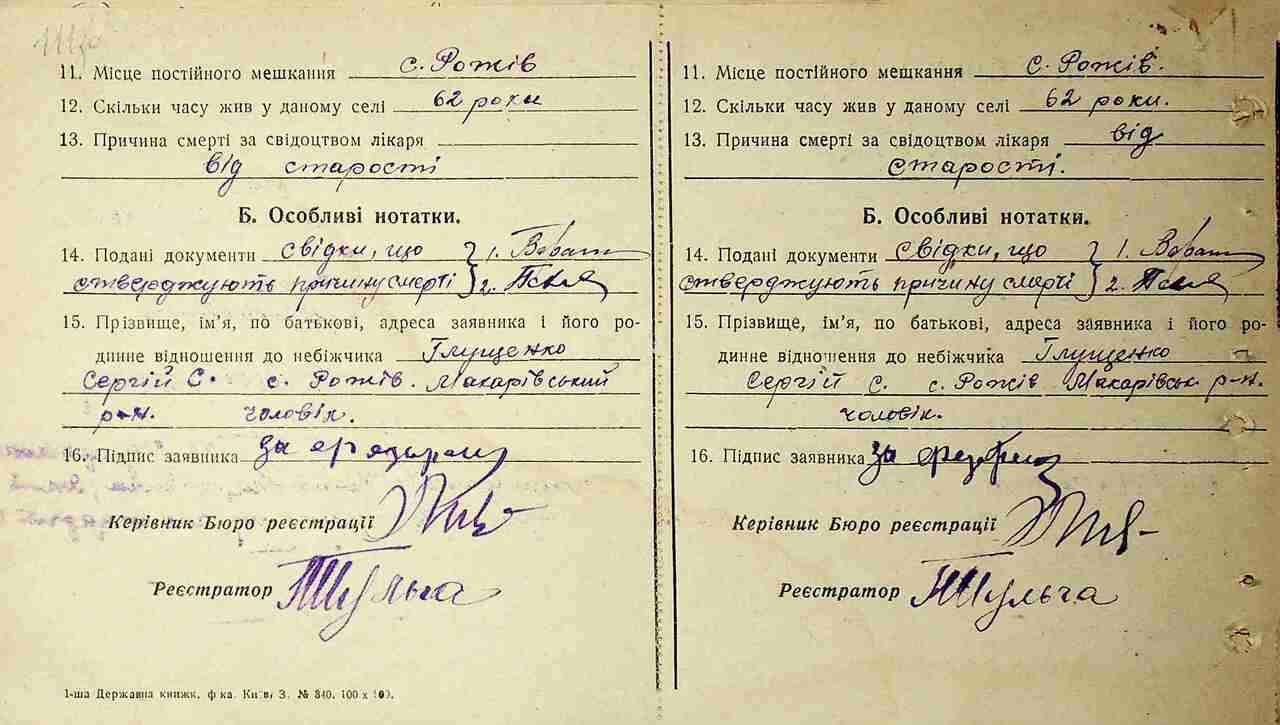 11. Місце постійного мешкання с. Рожів
12. Скільки часу жив у даному селі 62 роки
13. Причина смерті за свідоцтвом лікаря
від старості
Б. Особливі нотатки.
14. Подані документи свідки, що } 1.
стверджують причину смерті } 2.
15. Прізвище, ім’я, по батькові, адреса заявника і його ро-
динне відношення до небіжчика Глущенко
Сергій С. с. Рожів. Макарівський
р-н. чоловік.
16. Підпис заявника за
Керівник Бюро реєстрації
Реєстратор
1-ша Державна книжк. ф-ка. Київ, З. № 840. 100 х 100.
11. Місце постійного мешкання с. Рожів.
12. Скільки часу жив у даному селі 62 роки.
13. Причина смерті за свідоцтвом лікаря від
старості.
Б. Особливі нотатки.
14. Подані документи свідки, що } 1.
стверджують причину смерті } 2.
15. Прізвище, ім’я, по батькові, адреса заявника і його ро-
динне відношення до небіжчика Глущенко
Сергій С. с. Рожів Макарівськ. р-н.
чоловік.
16. Підпис заявника за
Керівник Бюро реєстрації
Реєстратор